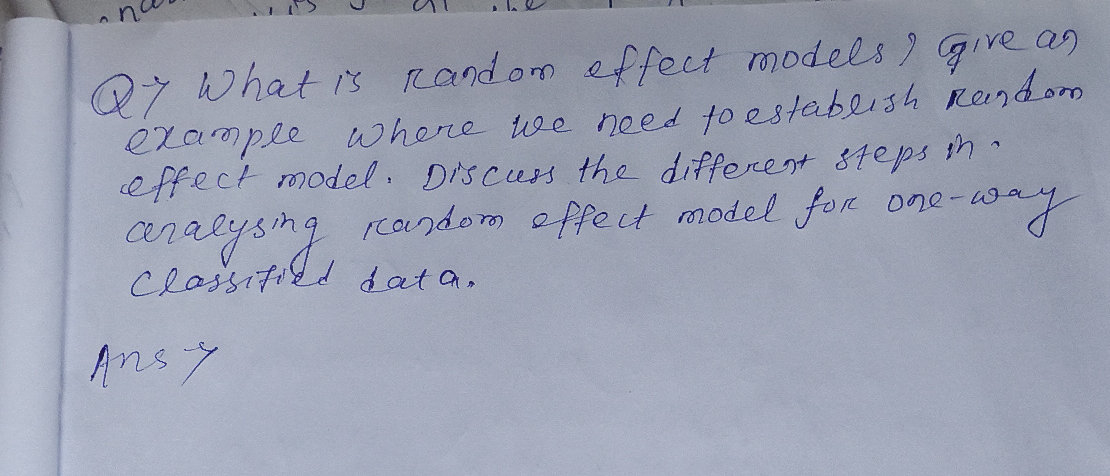 Q→ What is random effect models? Give an
example where we need to establish random
effect model. Discuss the different steps in
analysing random effect model for one-way
classified data.
Ans→